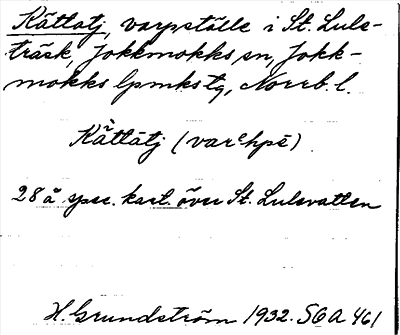 Kättatj, varpställe i St. Lule-
träsk, Jokkmokks sn, Jokk-
mokks lpmks tg, Norrb. l.
Kä̀ttātj (varehpē)
28 å spec. kart. över St. Lulevatten
H. Grundström 1932. SOA 461